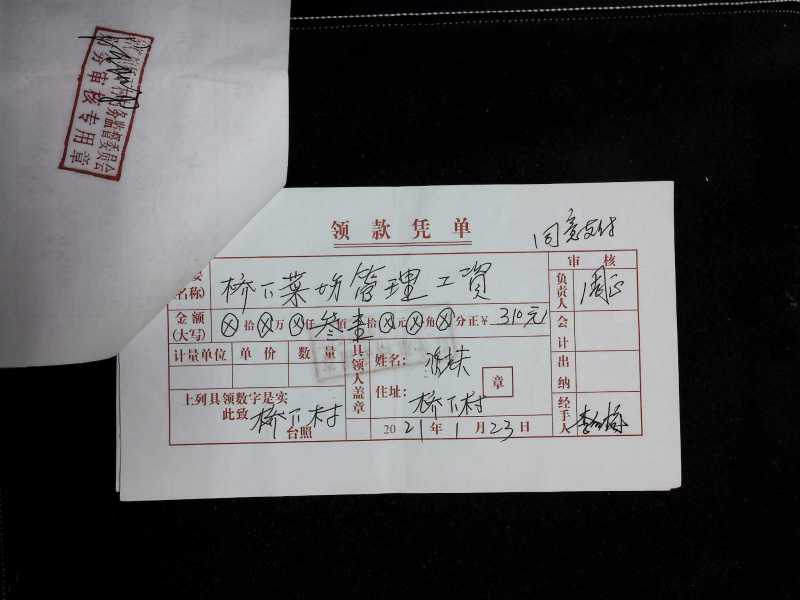 务监督委员会
务审核专用章
领款凭单
同意支付
名称) 桥下菜场管理工資
审核
负责人 周正
金额(大写) ⊗拾⊗万⊗仟叁佰壹拾⊗元⊗角⊗分正¥310元
会计
计量单位 单价 数量
具领人盖章
姓名:
章
出纳
住址: 桥下村
上列具领数字是实
此致 桥下村 台照
2021年1月23日
经手人